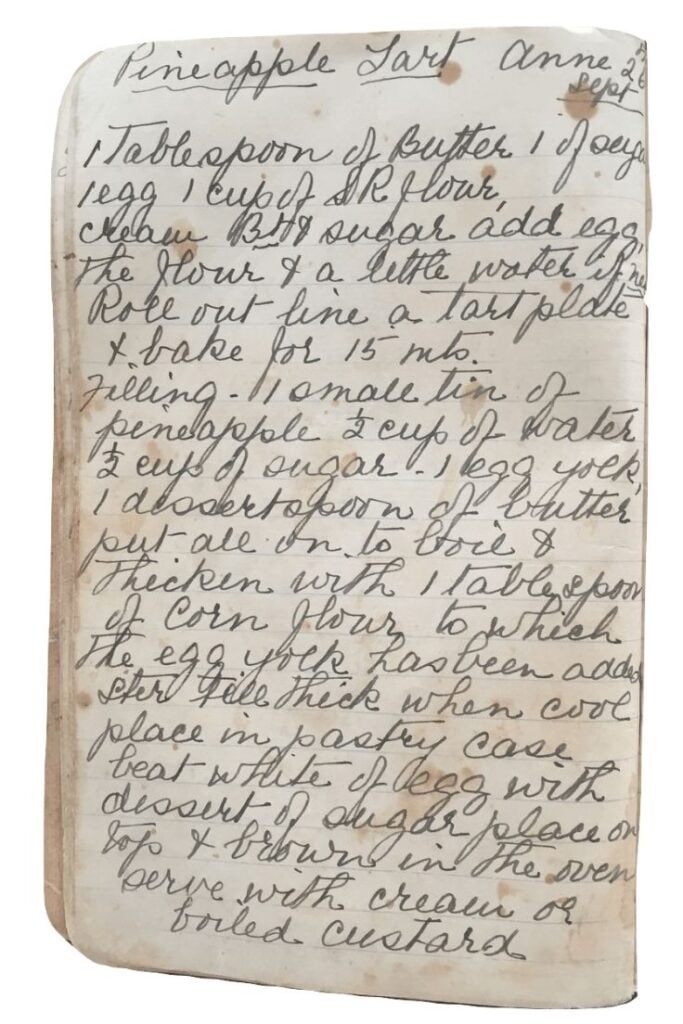 Pineapple Tart Anne
Sept
1 Tablespoon of Butter 1 of suga
1 egg 1 cup of S R flour,
cream Btt & sugar add egg,
the flour & a little water if ne
Roll out line a tart plate
& bake for 15 mts.
Filling - 1 small tin of
pineapple ½ cup of water
½ cup of sugar - 1 egg yolk,
1 dessertspoon of butter
put all on to boil &
thicken with 1 tablespoon
of corn flour to which
the egg yolk has been added
ster till thick when cool
place in pastry case
beat white of egg with
dessert of sugar place on
top & brown in the oven
serve with cream or
boiled custard